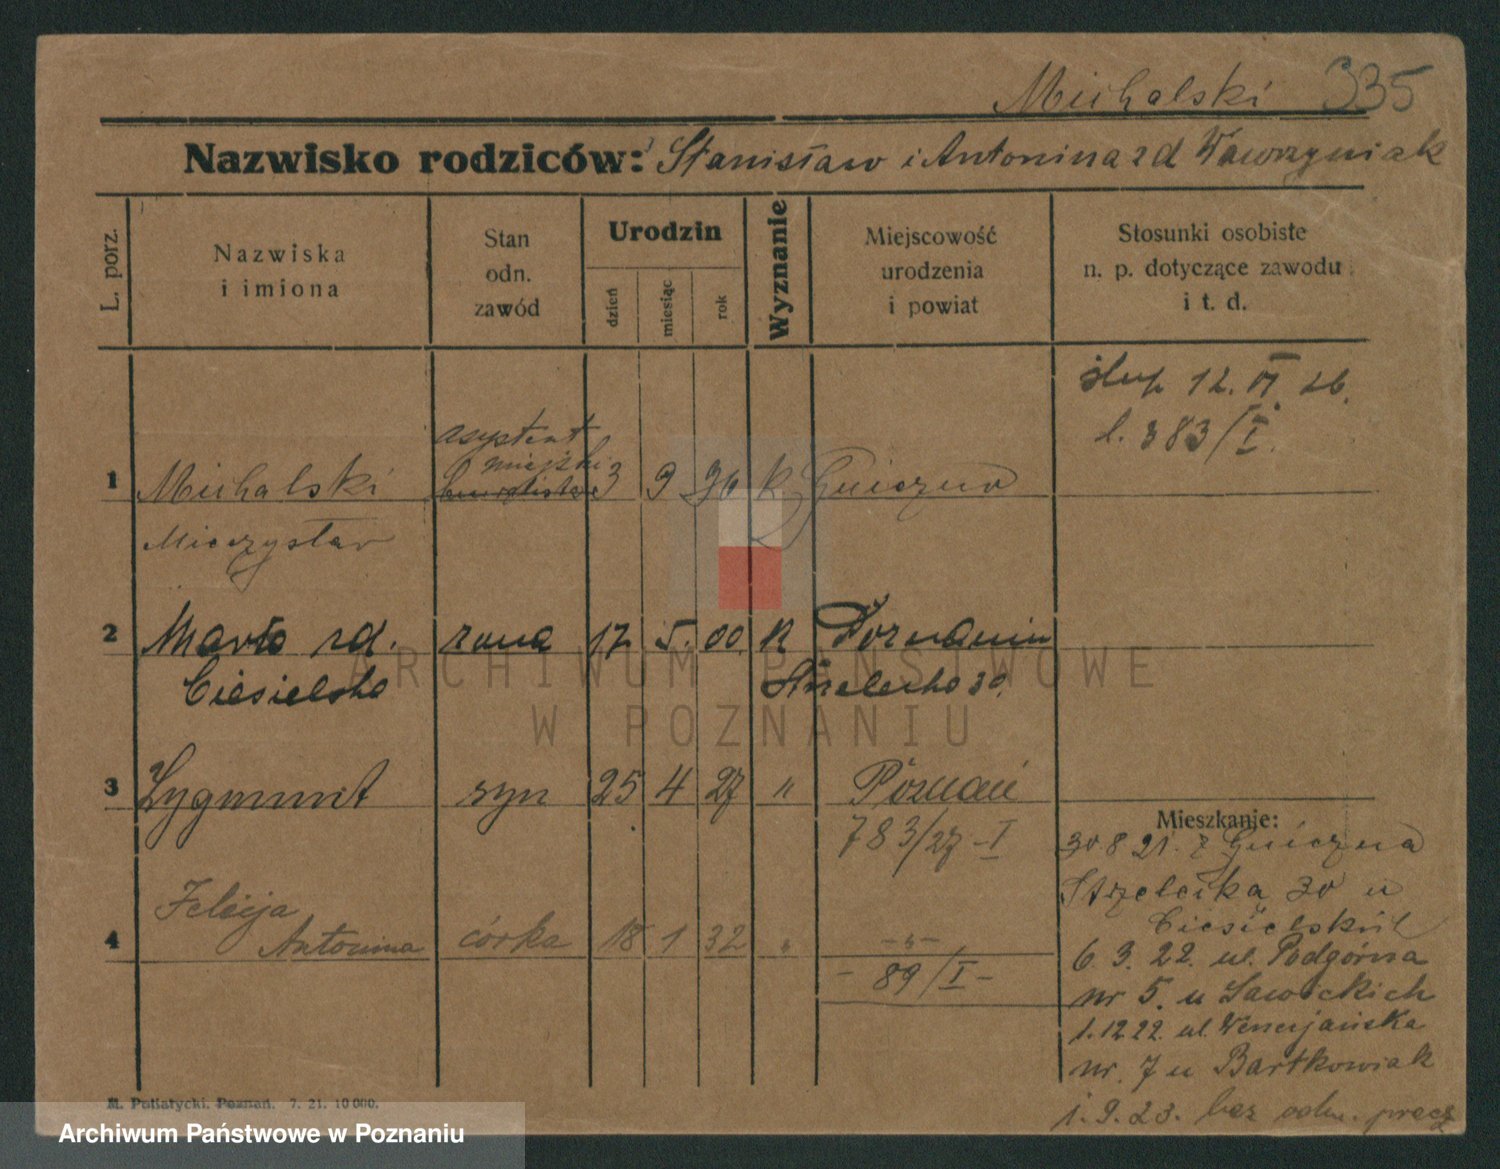 Michalski 335
Nazwisko rodziców: Stanisław i Antonina zd Wawrzyniak
L. porz.
Nazwiska
i imiona
Stan
odn.
zawód
Urodzin
dzień
miesiąc
rok
Wyznanie
Miejscowość
urodzenia
i powiat
Stosunki osobiste
n. p. dotyczące zawodu
i t. d.
ślub 12. VI. 26.
l. 383/I.
asystent
miejski
1 Michalski 3 9 K Gniezno
Mieczysław
2 Marta zd. żona 17 5. 00 K Poznaniu
Ciesielska Strzelecka 30.
3 Zygmunt syn 25 4 27 " Poznań
783/27-I
4 Felicja
Antonina córka 18 1 32 " -"-
- 89/I -
Mieszkanie:
30 8 21. z Gniezna
Strzelecka 30 u
Ciesielskich
6. 3. 22. ul. Podgórna
nr 5. u Sawickich
1. 12 22. ul. Wenecjańska
nr. 7 u Bartkowiak
1. 9. 23. bez odm. pracz
M. Putiatycki. Poznań. 7. 21. 10 000.
ARCHIWUM PAŃSTWOWE
W POZNANIU
Archiwum Państwowe w Poznaniu